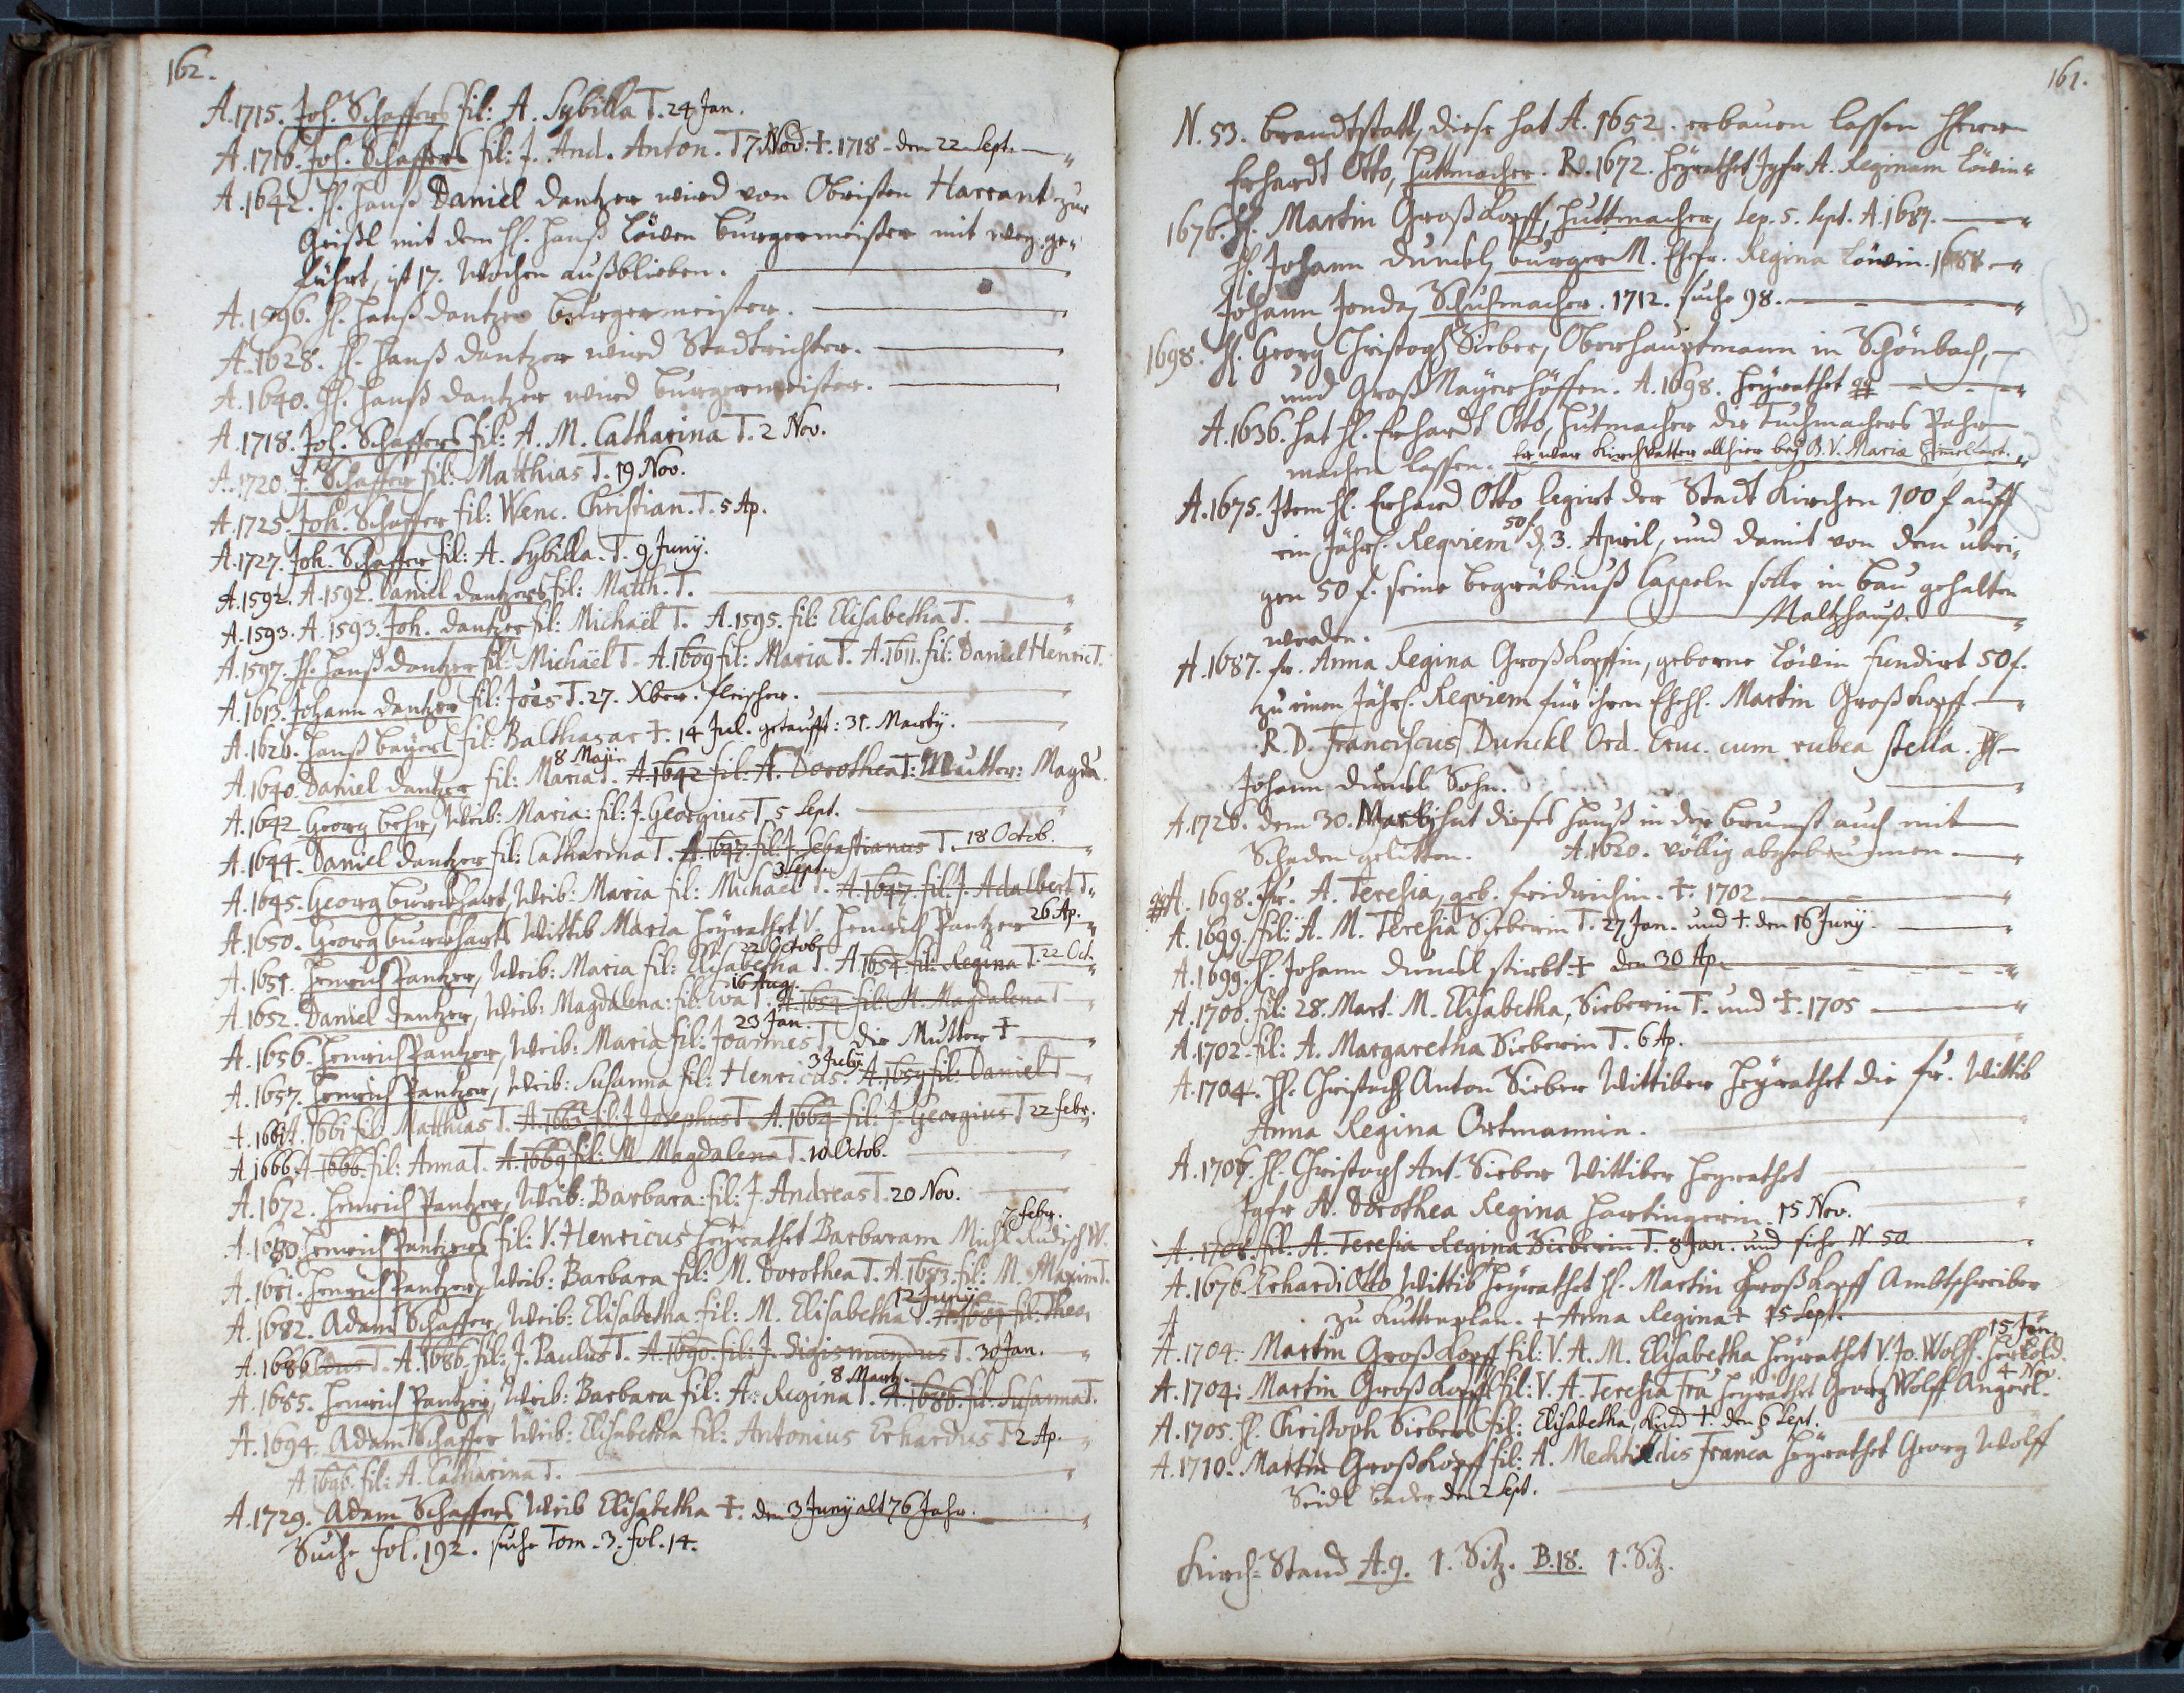 162.
A. 1715. Joh. Schaffers fil: A. Sybilla T. 24 Jan.
A. 1716. Joh. Schaffers fil: J. And. Anton. T 7 Nov. †. 1718 - den 22 Sept.
A. 1642. H. Hanß Daniel Dantzer wird von Obristen Harrant zur
Geißl mit dem H. Hanß Löwen Burgermeister mit weg ge-
führt, ist 17. Wochen außblieben.
A. 1596. H. Hanß Dantzer Burgermeister.
A. 1628. H. Hanß Dantzer wird Stadtrichter.
A. 1640. H. Hanß Dantzer wird Burgermeister.
A. 1718. Joh. Schaffers fil: A. M. Catharina T. 2 Nov.
A. 1720. J. Schaffer fil: Matthias T. 19 Nov.
A. 1725. Joh. Schaffer fil: Wenc. Christian. T. 5 Ap.
A. 1727. Joh. Schaffer fil: A. Sybilla. T. 9 Junÿ.
A. 1592. A. 1592. Daniel Dantzers fil: Matth. T.
A. 1593. A. 1593. Joh. Dantzer fil: Michaël T. A. 1595. fil: Elisabetha T.
A. 1597. H. Hanß Dantzer fil: Michaël T. A. 1609 fil: Maria T. A. 1611. fil: Daniel Henric T.
A. 1613. Johann Dantzer fil: Joës T. 27. Xber. Fleischer.
A. 1626. Hanß Bayerl fil: Balthasar †. 14 Jul. getaufft: 31. Martÿ.
8 Maji.
A. 1640. Daniel Dantzer fil: Maria T. A. 1642 fil: A. Dorothea T: Mutter: Magda.
A. 1642. Georg Behr, Weib: Maria: fil: J. Georgius T. 5 Sept.
A. 1644. Daniel Dantzer fil: Catharina T. A. 1647. fil: J. Sebastianus T. 18 Octob.
3 Sept.
A. 1645. Georg Burckhart, Weib: Maria fil: Michael T. A. 1647. fil. J. Adalbert T.
A. 1650. Georg Burckharts Wittib Maria heÿrathet V. Henrich Pantzer 26 Ap.
22 Octob
A. 1651. Henrich Pantzer, Weib: Maria fil: Elisabetha T. A. 1654. fil: Regina T. 22 Oct.
16 Aug.
A. 1652. Daniel Dantzer, Weib: Magdalena: fil: Eva T. A. 1654 fil: A. Magdalena T
23 Jan.
A. 1656. Henrich Pantzer, Weib: Maria fil: Joannes T. Die Mutter †
3 Julÿ.
A. 1657. Henrich Pantzer, Weib: Susanna fil: Henricus. A. 1659 fil: Daniel T
A. 1661 A. 1661 fil: Matthias T. A. 1663. fil: J. Josephus T. A. 1664 fil: J. Georgius T 22 febr.
A. 1666. A. 1666. fil: Anna T. A. 1669 fil: M. Magdalena T. 10 Octob.
A. 1672. Henrich Pantzer, Weib: Barbara: fil: J. Andreas T. 20 Nov.
7 febr.
A. 1680 Henrich Pantzers fil: V. Henricus heÿrathet Barbaram Michl Rudisch W.
A. 1681. Henrich Pantzer, Weib: Barbara fil: M. Dorothea T. A. 1683. fil: M. Maxim T.
12 Junÿ
A. 1682. Adam Schaffer, Weib: Elisabetha: fil: M. Elisabetha T. A. 1684 fil. Thea,
A. 1686 dus T. A. 1686. fil: J. Paulus T. A. 1690. fil: J. Sigismundus T. 30 Jan.
8 Martÿ.
A. 1685. Henrich Pantzer, Weib: Barbara fil: A. Regina T. A. 1686. fil. Susanna T.
A. 1694. Adam Schaffer Weib: Elisabetha fil: Antonius Erhardus T 2 Ap.
A. 1696. fil: A. Catharina T.
A. 1729. Adam Schaffers Weib Elisabetha †. den 3 Junÿ alt 76 Jahr.
Suche fol. 192. suche Tom. 3. fol. 14.
161.
N. 53. Brandtstatt, diese hat A. 1652. erbauen lassen Herr
Erhardt Otto, Huttmacher. R. 1672. heÿrathet Jgfr A. Reginam Löwin
1676. H. Martin Großkopff, Huttmacher, Sep. 5. Sept. A. 1687.
H. Johann Dunckl, Burger M. Ehefr. Regina Löwin. 1688
Johann Jonda, Schuhmacher. 1712. suche 98.
1698. H. Georg Christoph Sieber, Oberhauptmann in Schönbach,
und Groß Maÿerhöffen. A. 1698. heÿrathet
A. 1636. hat H. Erhardt Otto, Hutmacher die Tuchmachers Rahm
machen lassen. Er war Kirchvatter allhier beÿ B. V. Maria
A. 1675. Item H. Erhard Otto legirt der Stadt Kirchen 100 f auff
50 f.
ein Jährl. Reqviem d. 3. April, und damit von dem ubri-
gen 50 f. seine begräbnuß Cappeln solle in Bau gehalten
werden. Maltzhauß.
A. 1687. fr. Anna Regina Großkopffin, geborne Löwin fundirt 50 f.
zu einen Jährl. Reqviem für ihren Ehehl. Martin Großkopff
R. D. Franciscus Dunckl Ord. Cruc. cum rubea stella. H.
Johann Dunckl Sohn.
A. 1726. dem 30. Martÿ hat dieses Hauß in der Brunst auch mit
Schaden gelitten. A. 1620. völlig abgebrunnen
A. 1698. Fr. A. Teresia, geb. Fridrichin. †. 1702
A. 1699. fil: A. M. Teresia Sieberin T. 27 Jan. und †. den 16 Junÿ.
A. 1699. H. Johann Dunckl stirbt † den 30 Ap.
A. 1700. fil: 28. Mart. M. Elisabetha, Sieberin T. und †. 1705
A. 1702. fil: A. Margaretha Sieberin T. 6 Ap.
A. 1704. H. Christoph Anton Sieber Wittiber heÿrathet die fr. Wittib
Anna Regina Ortmannin.
A. 1707. H. Christoph Ant. Sieber Wittiber heÿrathet
Jgfr A. Dorothea Regina Hartingerin. 15 Nov.
A. 1708. fil. A. Teresia Regina Sieberin T. 8 Jan. und siehe N 50
A. 1676. Erhardi Otto Wittib heÿrathet H. Martin Großkopff Ambtschreiber
A zu Kuttenplan. † Anna Regina † 15 Sept.
15 Jan.
A. 1704. Martin Großkopff fil: V. A. M. Elisabetha heÿrathet V. Jo. Wolff. Herkold.
4 Nov.
A. 1704: Martin Großkopff fil: V. A. Teresia Fra heÿrathet Georg Wolff Angerl.
A. 1705. H. Christoph Siebers fil: Elisabetha, Kind †. den 6 Sept.
A. 1710. Martin Großkopff fil: A. Mechtildis Franca heÿrathet Georg Wolff
Seidl Bader den 2 Sept.
Kirch-Stand A. 9. 1. Sitz. B. 18. 1. Sitz.